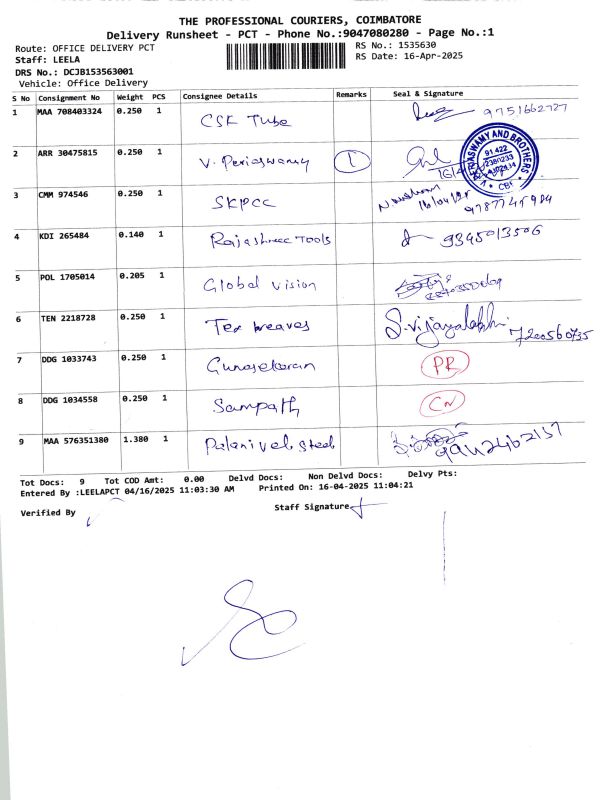 THE PROFESSIONAL COURIERS, COIMBATORE
Delivery Runsheet - PCT - Phone No.:9047080280 - Page No.:1
Route: OFFICE DELIVERY PCT
Staff: LEELA
DRS No.: DCJB153563001
Vehicle: Office Delivery
RS No.: 1535630
RS Date: 16-Apr-2025
S No Consignment No Weight PCS Consignee Details Remarks Seal & Signature
1 MAA 708403324 0.250 1 CSK Tube 9751662727
2 ARR 30475815 0.250 1 V. Periaswamy 1
PERIASWAMY AND BROTHERS
91 422
3 CMM 974546 0.250 1 SKPCC 16/04/25
4 KDI 265484 0.140 1 Rajashree Tools 9345013506
5 POL 1705014 0.205 1 Global vision
6 TEN 2218728 0.250 1 Tex weaves S.vijayalakshmi 7200560735
7 DDG 1033743 0.250 1 Gunasekaran PR
8 DDG 1034558 0.250 1 Sampath CN
9 MAA 576351380 1.380 1 Palanivel steel
Tot Docs: 9 Tot COD Amt: 0.00 Delvd Docs: Non Delvd Docs: Delvy Pts:
Entered By :LEELAPCT 04/16/2025 11:03:30 AM Printed On: 16-04-2025 11:04:21
Verified By Staff Signature